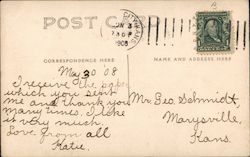 POST CARD
1908
CORRESPONDENCE HERE
NAME AND ADDRESS HERE
May 30 08
I receive the pape
which you sent
me and thank you
many times. I like
it very much.
Love from all
Katie.
Mr. Geo Schmidt,
Marysville,
Kans.